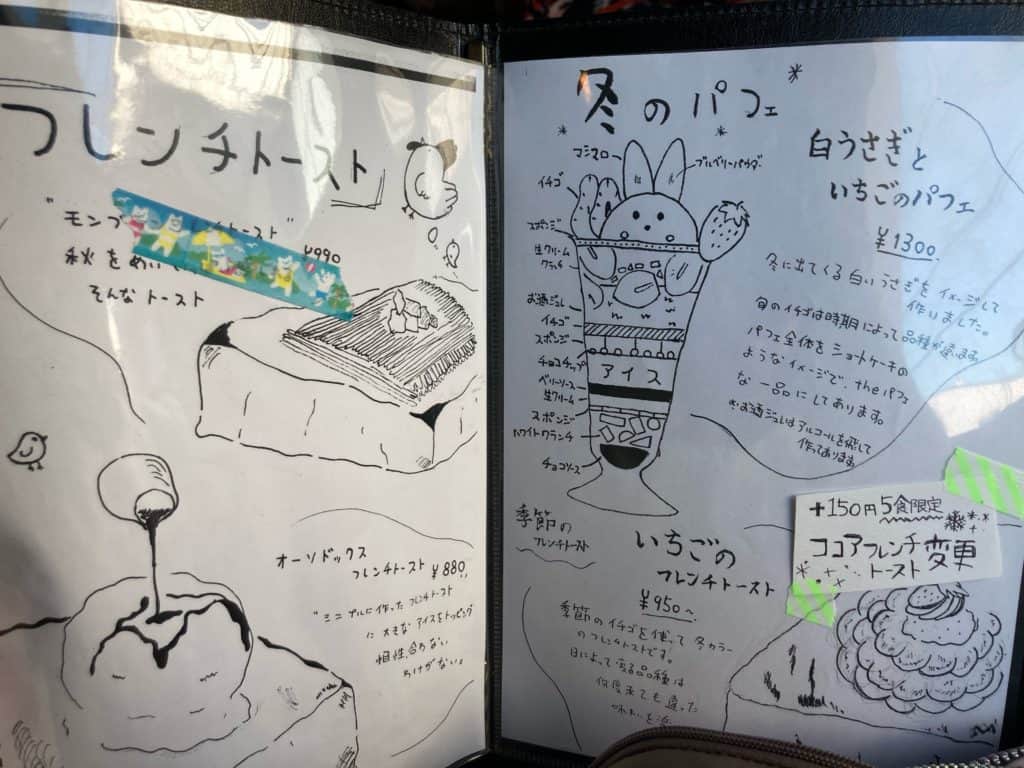 フレンチトースト
"モンブ
トースト"
¥990
秋をめい
そんなトースト
オーソドックス
フレンチトースト ¥880
"シンプルに作ったフレンチトースト
に大きなアイスをトッピング
相性合わない
わけがない。"
冬のパフェ
マシマロ
ブルーベリーパウダー
イチゴ
スポンジ
生クリーム
クランチ
お酒ジュレ
イチゴ
スポンジ
チョコチップ
アイス
ベリーソース
生クリーム
スポンジ
ホワイトクランチ
チョコソース
白うさぎと
いちごのパフェ
¥1300
冬に出てくる白いうさぎをイメージして
作りました。
旬のイチゴは時期によって品種が違います
パフェ全体をショートケーキの
ようなイメージで、theパフェ
な一品にしてあります。
※お酒ジュレはアルコールを飛して
作ってあります
季節の
フレンチトースト
いちごの
フレンチトースト
¥950〜
季節のイチゴを使って冬カラー
のフレンチトーストです。
日によって変る品種は
何度来ても違った
味わいを
+150円 5食限定
ココアフレンチ
トースト 変更